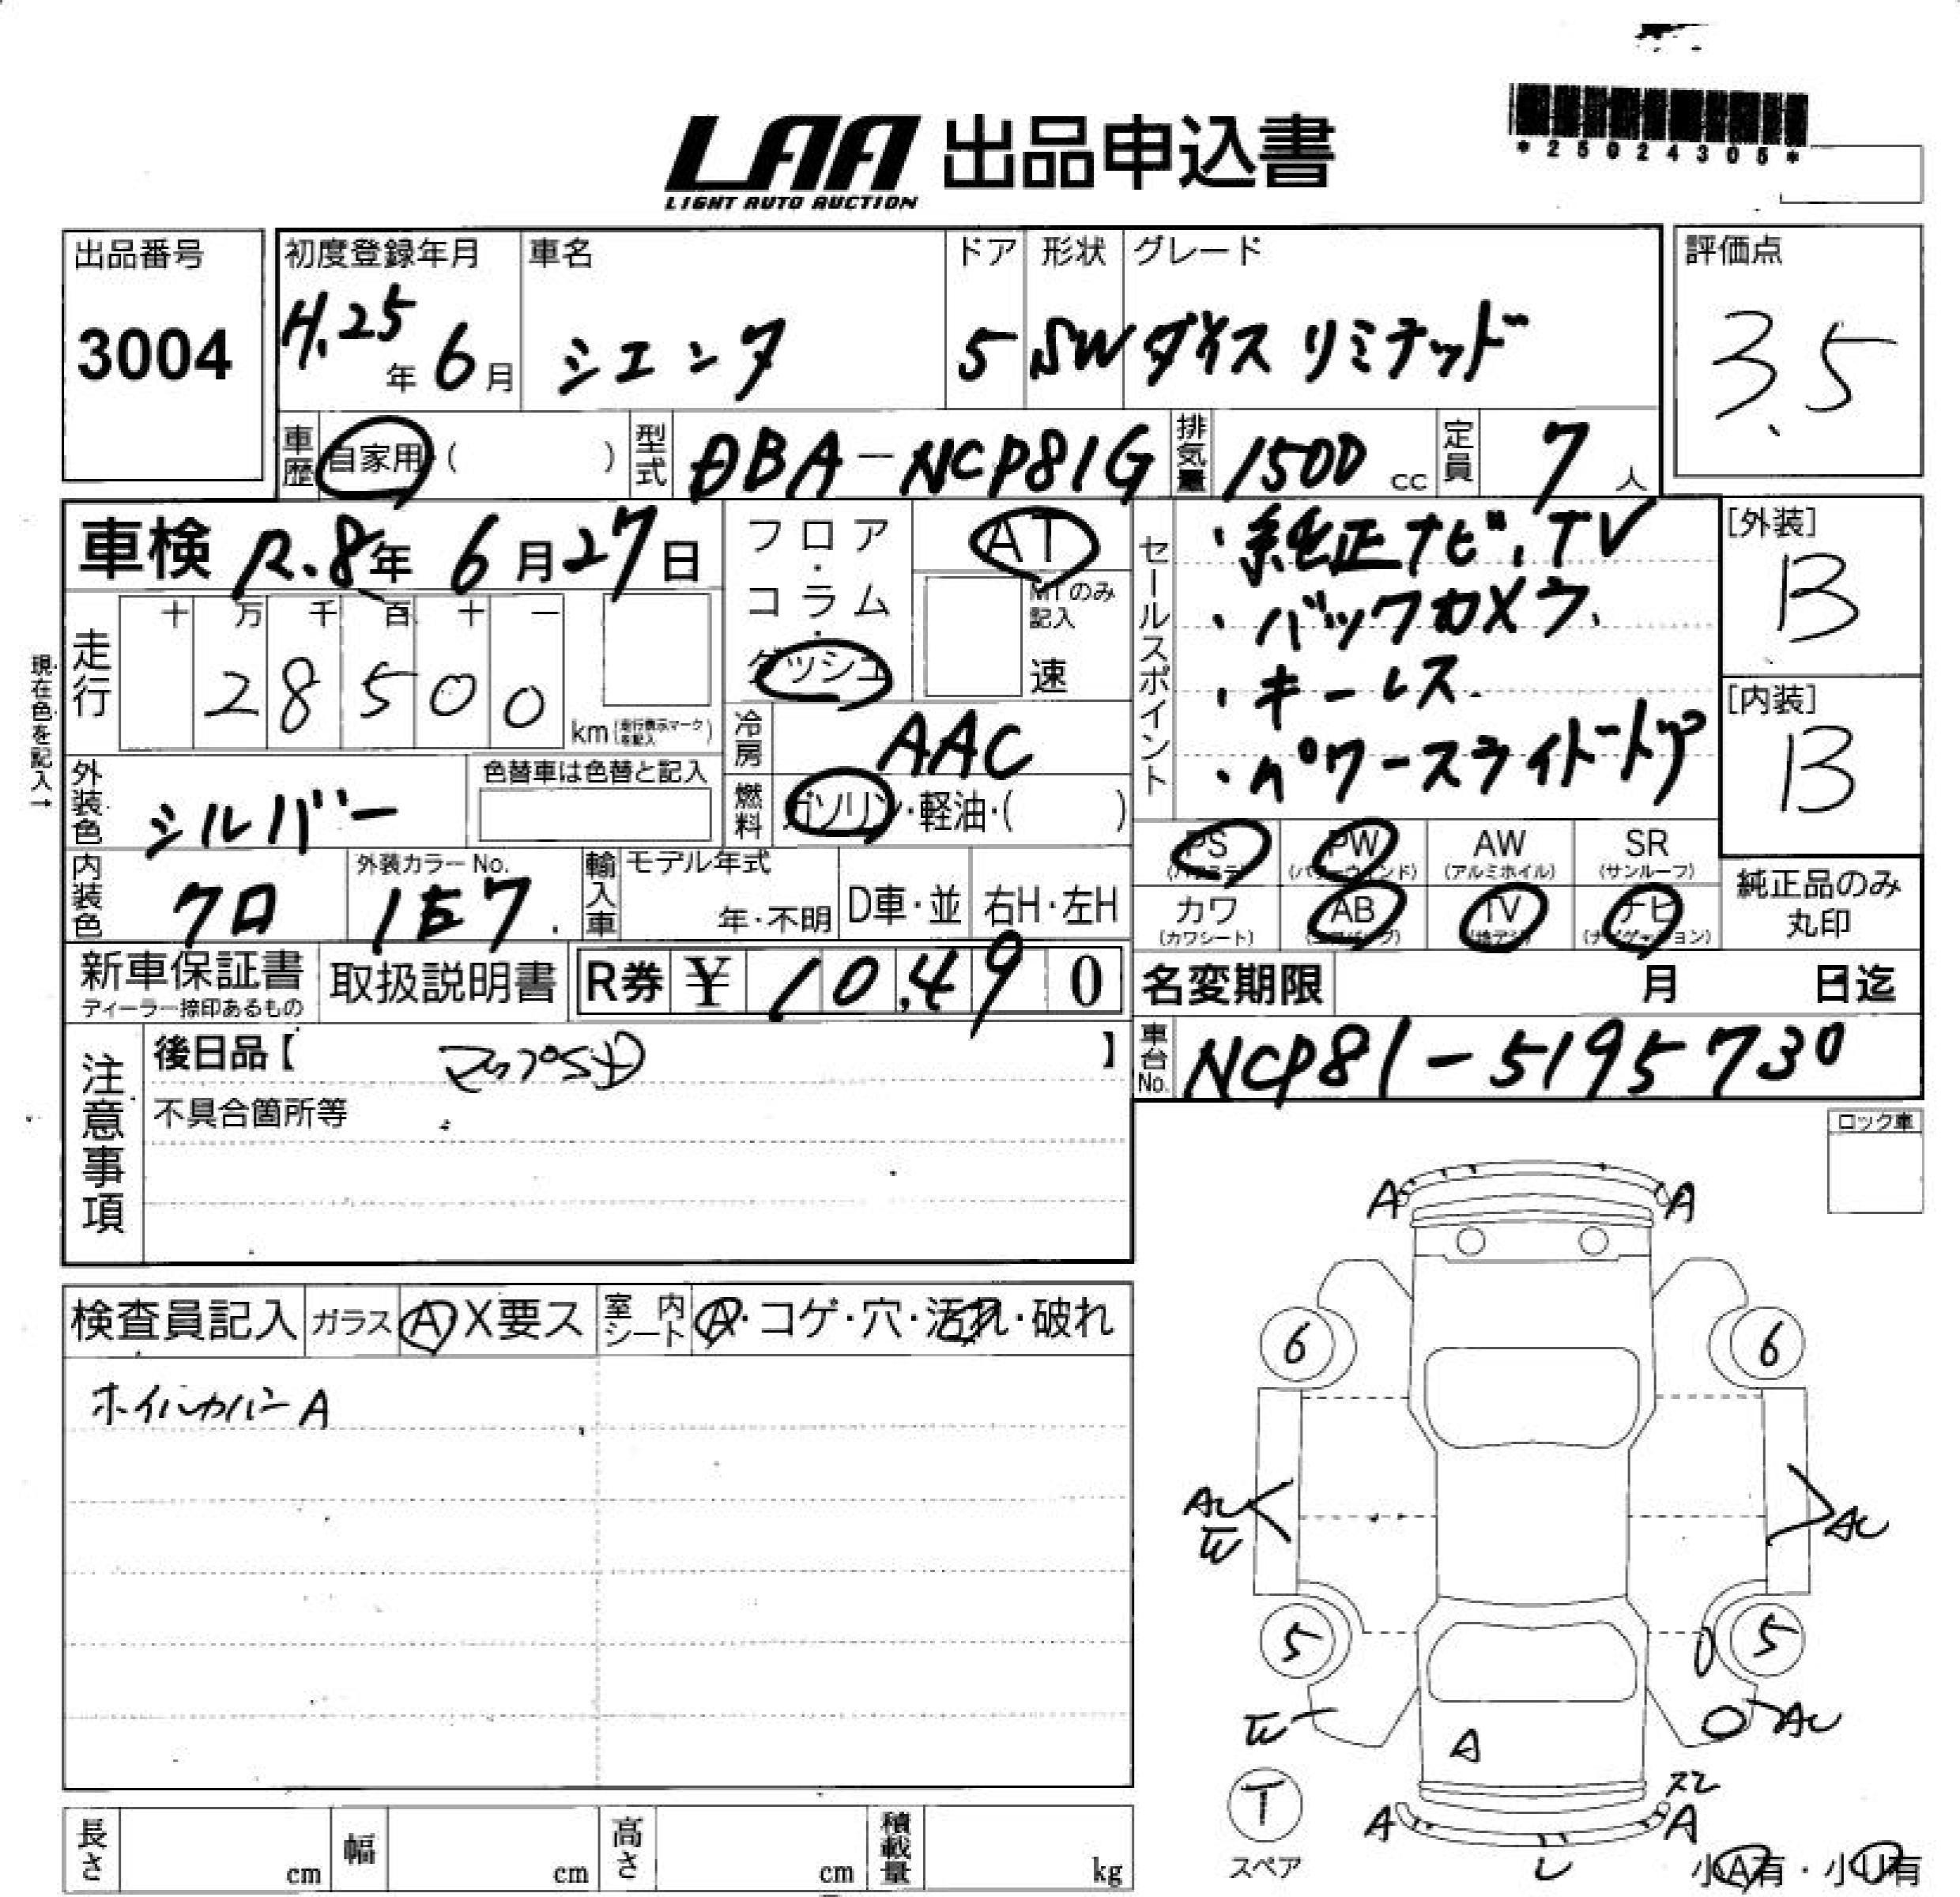 *25024305*
LAA 出品申込書
LIGHT AUTO AUCTION
出品番号
3004
初度登録年月
H.25年 6月
車名
シエンタ
ドア
5
形状
SW
グレード
ダイス リミテッド
評価点
3.5
車歴
自家用・( )
型式
DBA-NCP81G
排気量
1500 cc
定員
7 人
車検 R.8年 6月27日
フロア・コラム・ダッシュ
AT
MTのみ記入
速
セールスポイント
・純正ナビ、TV
・バックカメラ.
・キーレス.
・パワースライドドア
[外装]
B
[内装]
B
現在色を記入→
走行
十 万 千 百 十 一
2 8 5 0 0
km (走行表示マークを記入)
冷房
AAC
外装色
シルバー
色替車は色替と記入
燃料
ガソリン・軽油・( )
内装色
クロ
外装カラーNo.
1E7.
輸入車
モデル年式
年・不明
D車・並
右H・左H
PS
(パワステ)
PW
(パワーウィンド)
AW
(アルミホイル)
SR
(サンルーフ)
カワ
(カワシート)
AB
(エアバッグ)
TV
(地デジ)
ナビ
(ナビゲーション)
純正品のみ
丸印
新車保証書
ディーラー捺印あるもの
取扱説明書
R券 ¥ 10,490
名変期限 月 日迄
注意事項
後日品【 マップSD 】
不具合箇所等
車台No.
NCP81-5195730
ロック車
検査員記入
ガラス
A X要ス
室内シート
A・コゲ・穴・汚れ・破れ
ホイルカバーA
A A
6 6
AU
W
AU
5 5
W AU
A
T
スペア
A A
U
小A有・小U有
長さ cm
幅 cm
高さ cm
積載量 kg